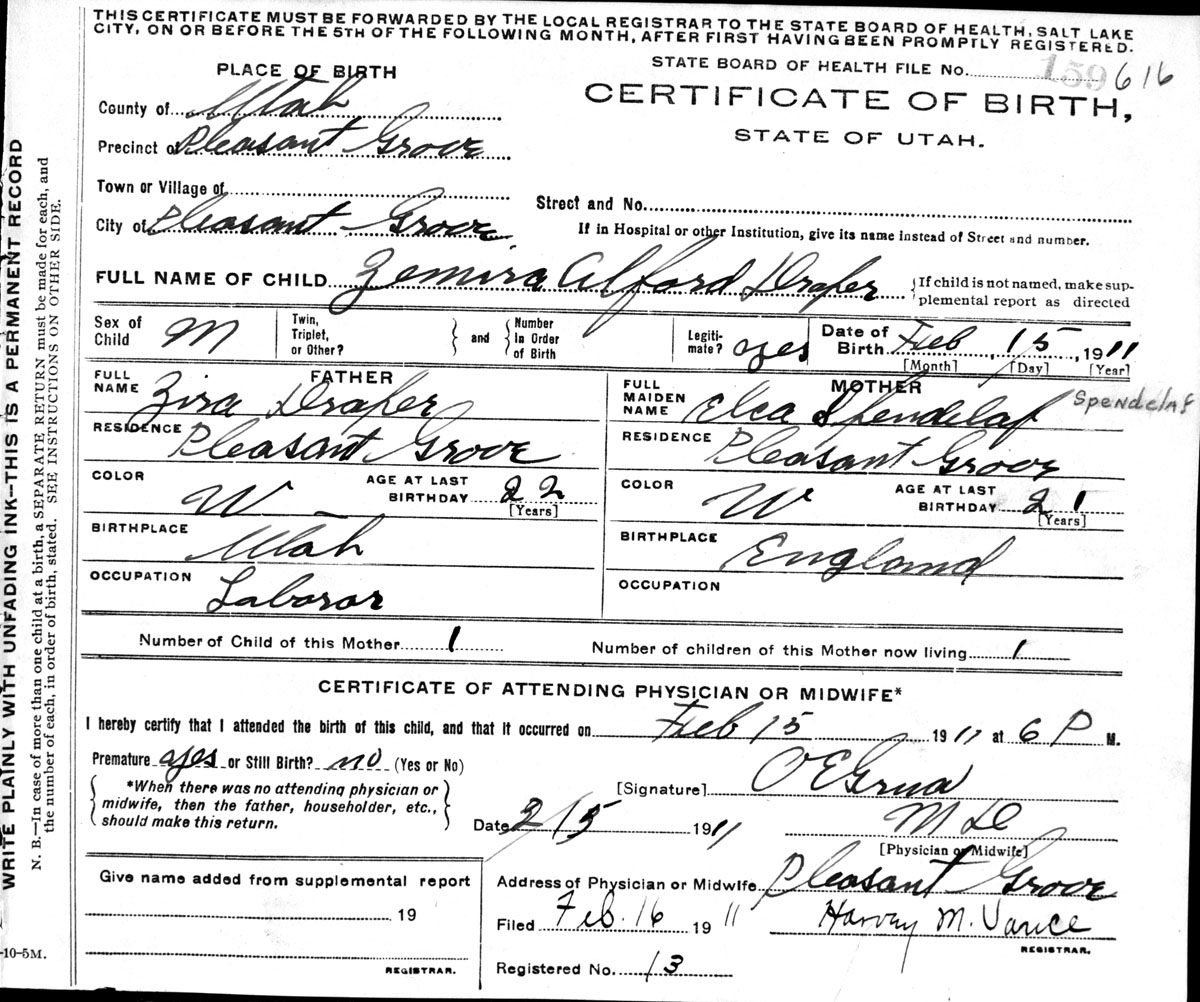 THIS CERTIFICATE MUST BE FORWARDED BY THE LOCAL REGISTRAR TO THE STATE BOARD OF HEALTH, SALT LAKE
CITY, ON OR BEFORE THE 5TH OF THE FOLLOWING MONTH, AFTER FIRST HAVING BEEN PROMPTLY REGISTERED.
PLACE OF BIRTH
STATE BOARD OF HEALTH FILE No. 159 616
County of Utah
CERTIFICATE OF BIRTH,
STATE OF UTAH.
Precinct of Pleasant Grove
Town or Village of
Street and No.
City of Pleasant Grove
If in Hospital or other Institution, give its name instead of Street and number.
FULL NAME OF CHILD Zemira Alford Draper { If child is not named, make sup-
plemental report as directed
Sex of Child M
Twin, Triplet, or Other? } and { Number in Order of Birth
Legiti-mate? yes
Date of Birth Feb, 15, 1911
[Month] [Day] [Year]
FATHER
FULL NAME Zira Draper
RESIDENCE Pleasant Grove
COLOR W
AGE AT LAST BIRTHDAY 22
[Years]
BIRTHPLACE Utah
OCCUPATION Laboror
MOTHER
FULL MAIDEN NAME Elca Spendelaf Spendelaf
RESIDENCE Pleasant Grove
COLOR W
AGE AT LAST BIRTHDAY 21
[Years]
BIRTHPLACE England
OCCUPATION
Number of Child of this Mother 1
Number of children of this Mother now living 1
CERTIFICATE OF ATTENDING PHYSICIAN OR MIDWIFE*
I hereby certify that I attended the birth of this child, and that it occurred on Feb 15 1911 at 6 P M.
Premature yes or Still Birth? no (Yes or No)
{ *When there was no attending physician or
midwife, then the father, householder, etc.,
should make this return. }
[Signature] O E Grua
Date 2/15 1911
M D
[Physician or Midwife]
Give name added from supplemental report
19
REGISTRAR.
Address of Physician or Midwife Pleasant Grove
Filed Feb. 16 1911
Harvey M. Vance
REGISTRAR.
Registered No. 13
WRITE PLAINLY WITH UNFADING INK--THIS IS A PERMANENT RECORD
N. B.—In case of more than one child at a birth, a SEPARATE RETURN must be made for each, and
the number of each, in order of birth, stated. SEE INSTRUCTIONS ON OTHER SIDE.
-10-5M.